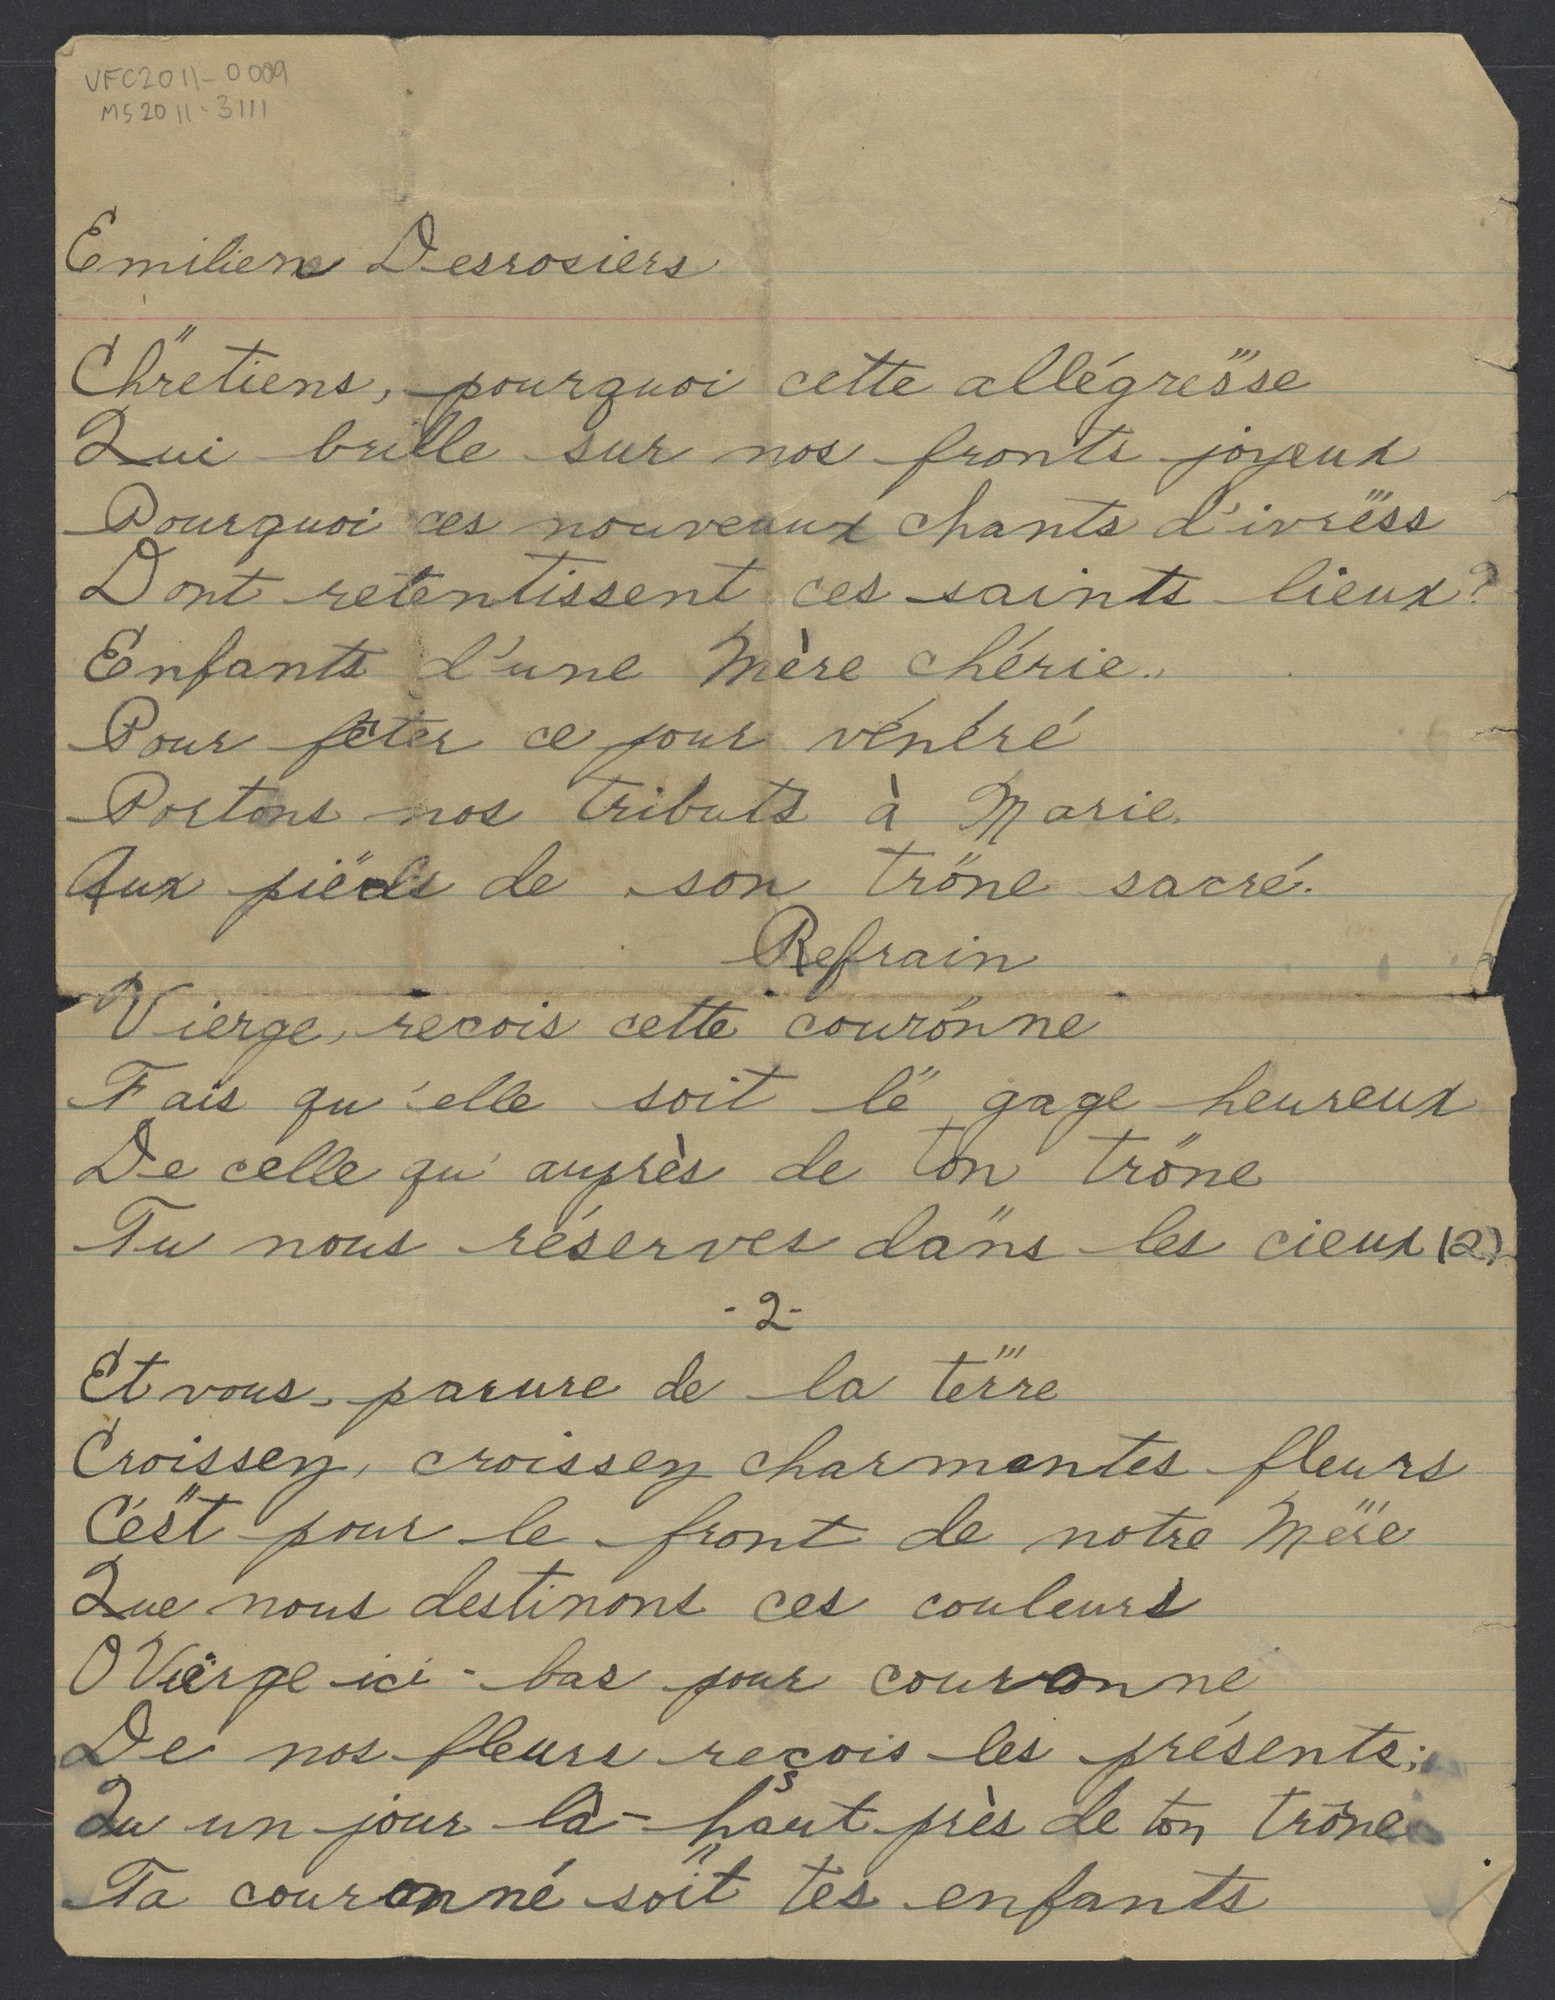 VFC2011-0009
MS2011-3111
Emilien Desrosiers
Chretiens, pourquoi cette allégresse
Qui brille sur nos fronts joyeux
Pourquoi ces nouveaux chants d'ivress
Dont retentissent ces saints lieux?
Enfants d'une Mère chérie..
Pour fêter ce jour vénéré
Portons nos tributs à Marie.
Aux pieds de son trône sacré.
Refrain
Vierge, recois cette couronne
Fais qu'elle soit le gage heureux
De celle qu'auprès de ton trône
Tu nous réserves dans les cieux (2)
-2-
Et vous, parure de la terre
Croissez, croissez charmantes fleurs
C'est pour le front de notre Mère
Que nous destinons ces couleurs
O Vierge ici-bas pour couronne
De nos fleurs reçois les présents;
Qu un jour là-haut près de ton trône
Ta couronné soit tes enfants